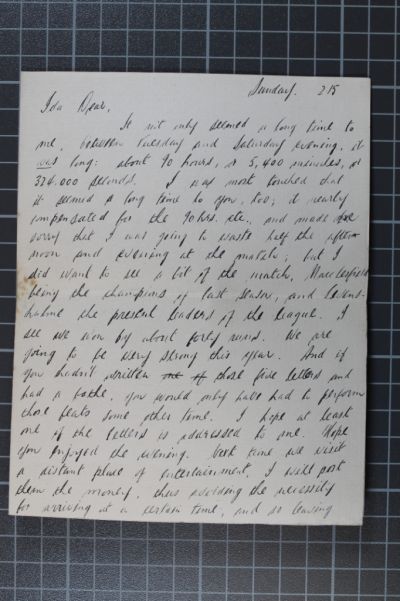 Sunday. 315
Ida Dear,
It not only seemed a long time to
me, between Tuesday and Saturday evening, it
was long: about 90 hours, or 5,400 minutes, or
324.000 seconds. I was most touched that
it seemed a long time to you, too; it nearly
compensated for the 90 hrs. etc., and made me
sorry that I was going to waste half the after-
noon and evening at the match; but I
did want to see a bit of the match, Macclesfield
being the champions of last season, and Levens-
hulme the present leaders of the league. I
see we won by about forty runs. We are
going to be very strong this year. And if
you hadn't written those five letters and
had a bathe, you would only have had to perform
those feats some other time. I hope at least
one of the letters is addressed to me. Hope
you enjoyed the evening. Next time we visit
a distant place of entertainment, I will post
them the money, thus avoiding the necessity
for arriving at a certain time, and so leaving